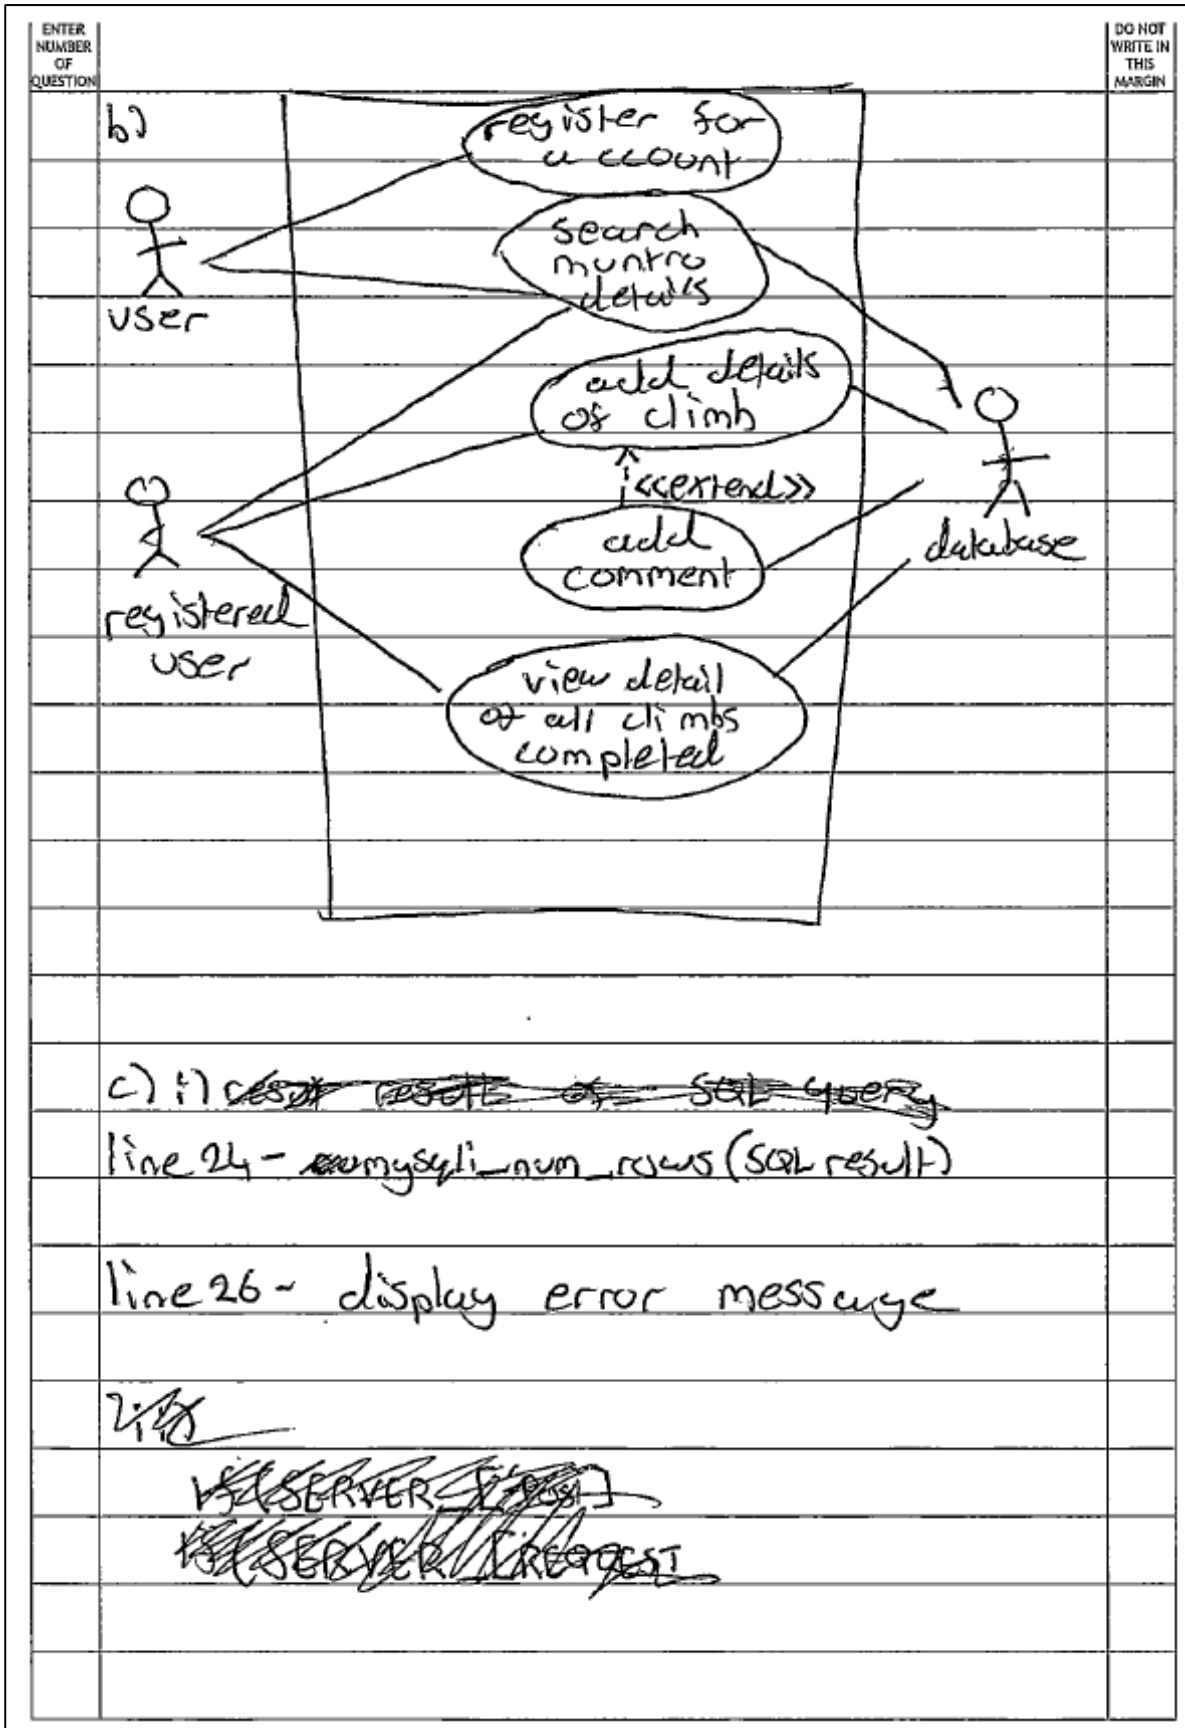 ENTER
NUMBER
OF
QUESTION
DO NOT
WRITE IN
THIS
MARGIN
b)
register for
account
search
muntro
details
user
add details
of climb
<<extend>>
add
comment
database
registered
user
view detail
of all climbs
completed
c) i) result of SQL query
line 24 - mysqli_num_rows (SQL result)
line 26 - display error message
if (SERVER_[POST]
if (SERVER_[REQUEST